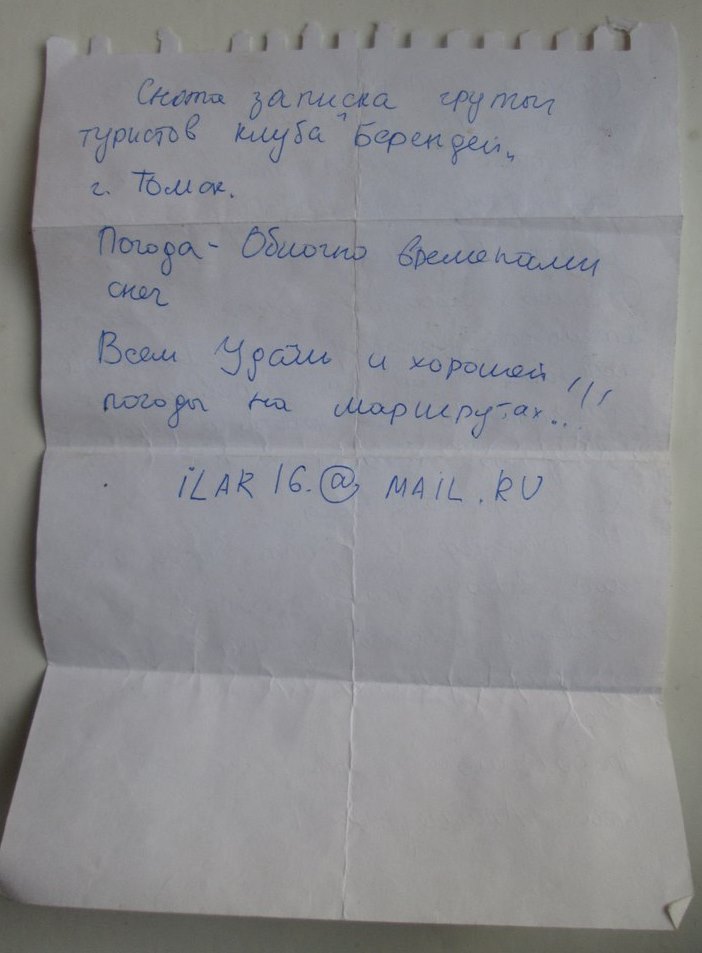 Снята записка группы
туристов клуба "Берендей"
г. Томск.
Погода - Облочно временами
снег
Всем Удачи и хорошей
погоды на маршрутах..!!!
iLAR16.@MAIL.RU